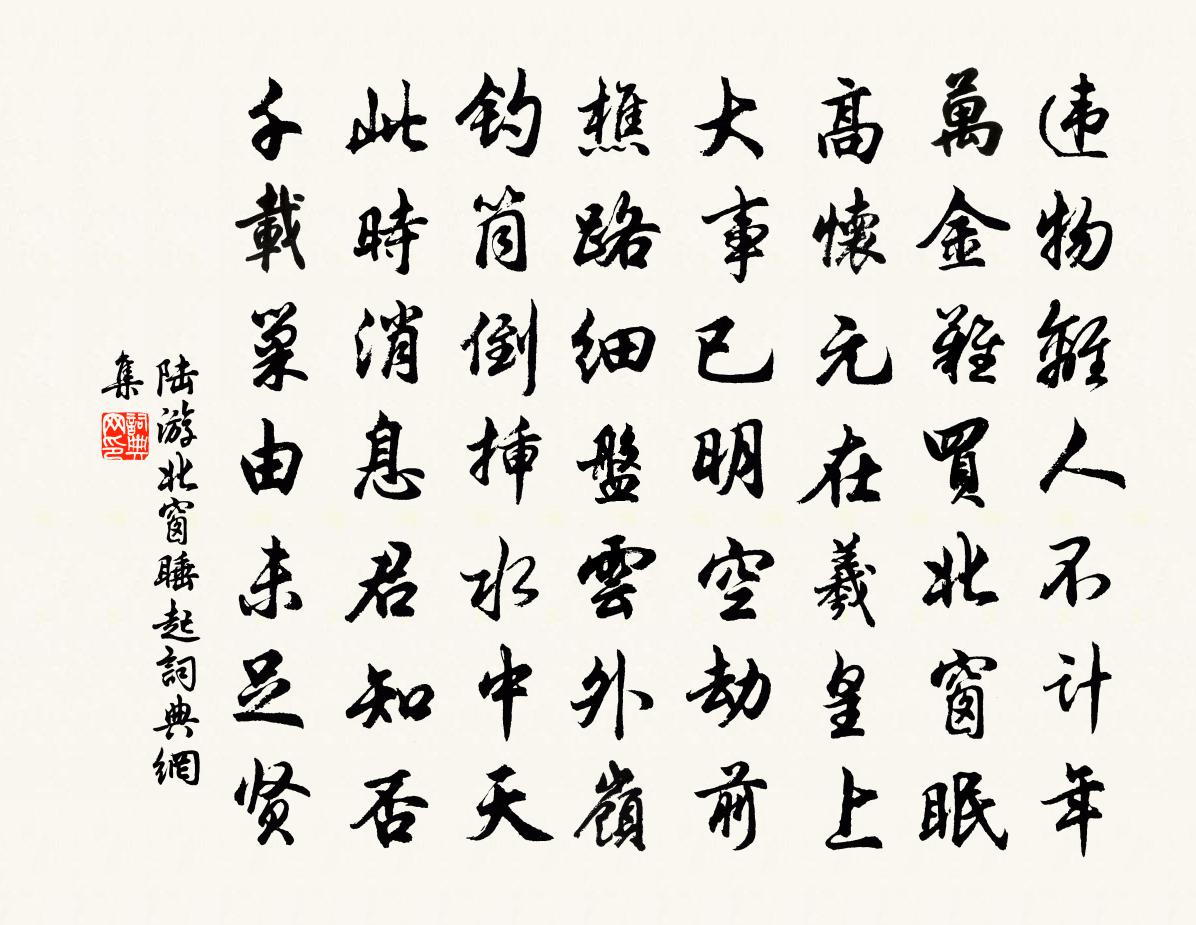 违物離人不计年
萬金難買北窗眠
高懷元在羲皇上
大事已明空劫前
樵路细盤雲外嶺
釣筒倒揷水中天
此時消息君知否
千載巢由未足贤
陆游北窗睡起詞典網
集
詞典
网印